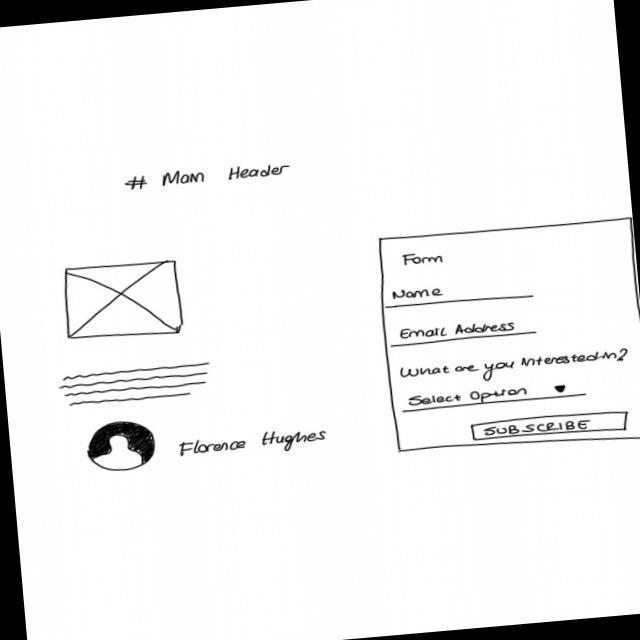 # Main Header
Florence Hughes
Form
Name
Email Address
What are you interested in?
Select Option
SUBSCRIBE